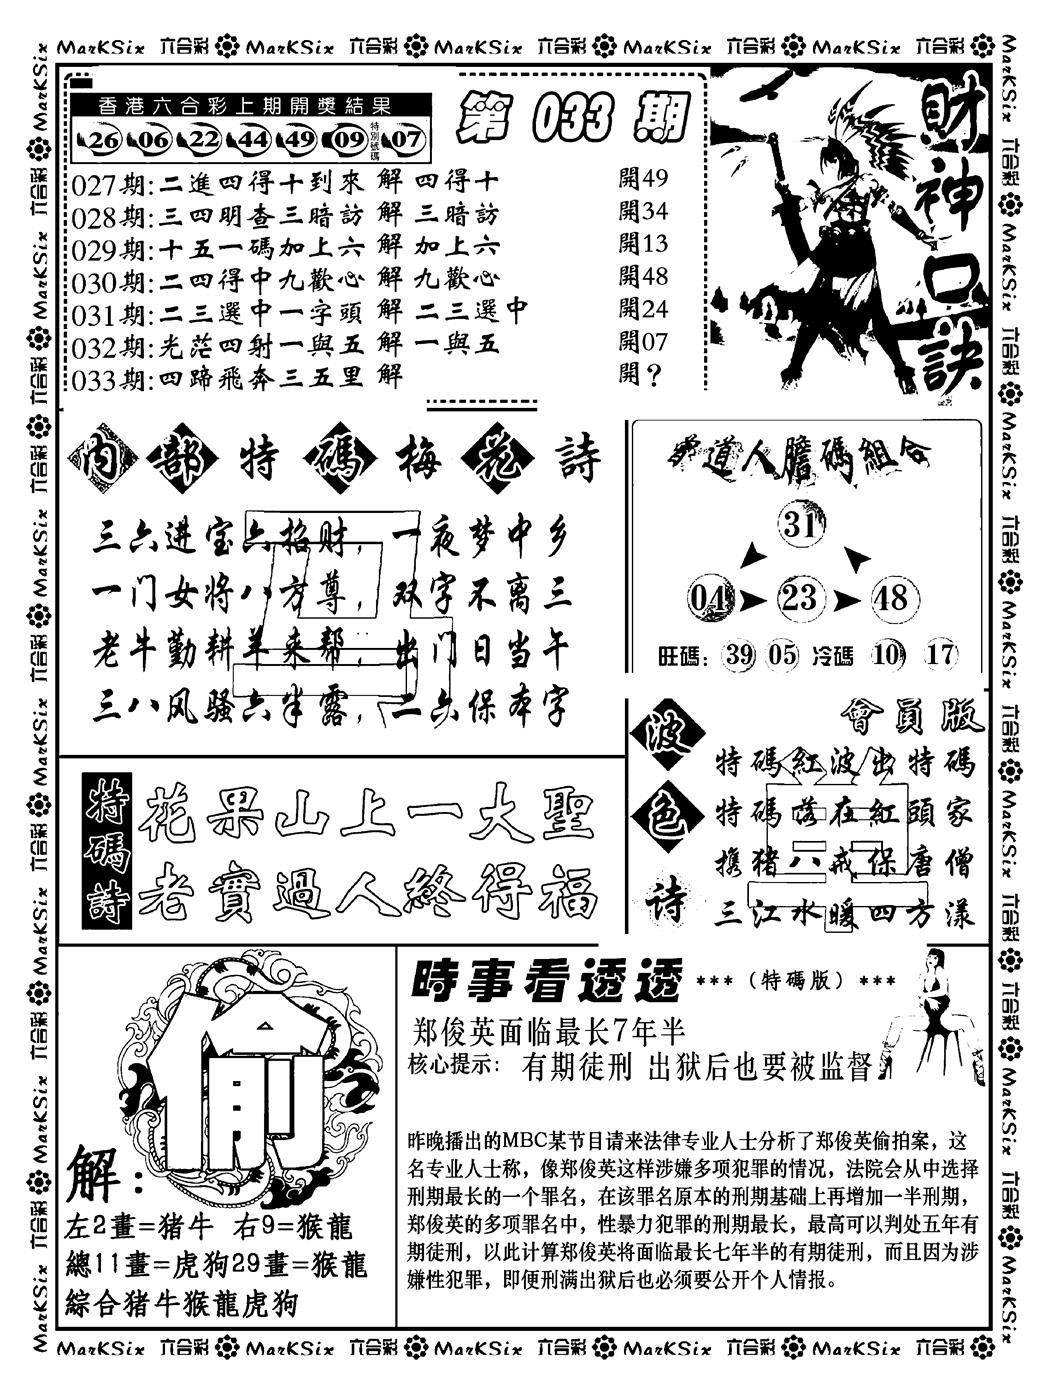 MarKSix 六合彩 MarKSix 六合彩 MarKSix 六合彩 MarKSix 六合彩 MarKSix 六合彩
香港六合彩上期開獎結果
26 06 22 44 49 09 特別號碼 07
第 033 期
財神口訣
027期:二進四得十到來 解 四得十 開49
028期:三四明查三暗訪 解 三暗訪 開34
029期:十五一碼加上六 解 加上六 開13
030期:二四得中九歡心 解 九歡心 開48
031期:二三選中一字頭 解 二三選中 開24
032期:光茫四射一與五 解 一與五 開07
033期:四蹄飛奔三五里 解 開?
內部特碼梅花詩
三六进宝六招财，一夜梦中乡
一门女将八方尊，双字不离三
老牛勤耕羊来帮，出门日当午
三八风骚六半露，二六保本字
道人膽碼組合
31
04 23 48
旺碼：39 05 冷碼 10 17
波色诗
會員版
特碼紅波出特碼
特碼落在紅頭家
携猪八戒保唐僧
三江水暖四方漾
特碼詩
花果山上一大聖
老實過人終得福
解：
左2畫=猪牛 右9=猴龍
總11畫=虎狗29畫=猴龍
綜合猪牛猴龍虎狗
時事看透透 ***（特碼版）***
郑俊英面临最长7年半
核心提示： 有期徒刑 出狱后也要被监督
昨晚播出的MBC某节目请来法律专业人士分析了郑俊英偷拍案，这
名专业人士称，像郑俊英这样涉嫌多项犯罪的情况，法院会从中选择
刑期最长的一个罪名，在该罪名原本的刑期基础上再增加一半刑期，
郑俊英的多项罪名中，性暴力犯罪的刑期最长，最高可以判处五年有
期徒刑，以此计算郑俊英将面临最长七年半的有期徒刑，而且因为涉
嫌性犯罪，即便刑满出狱后也必须要公开个人情报。
MarKSix 六合彩 MarKSix 六合彩 MarKSix 六合彩 MarKSix 六合彩 MarKSix 六合彩